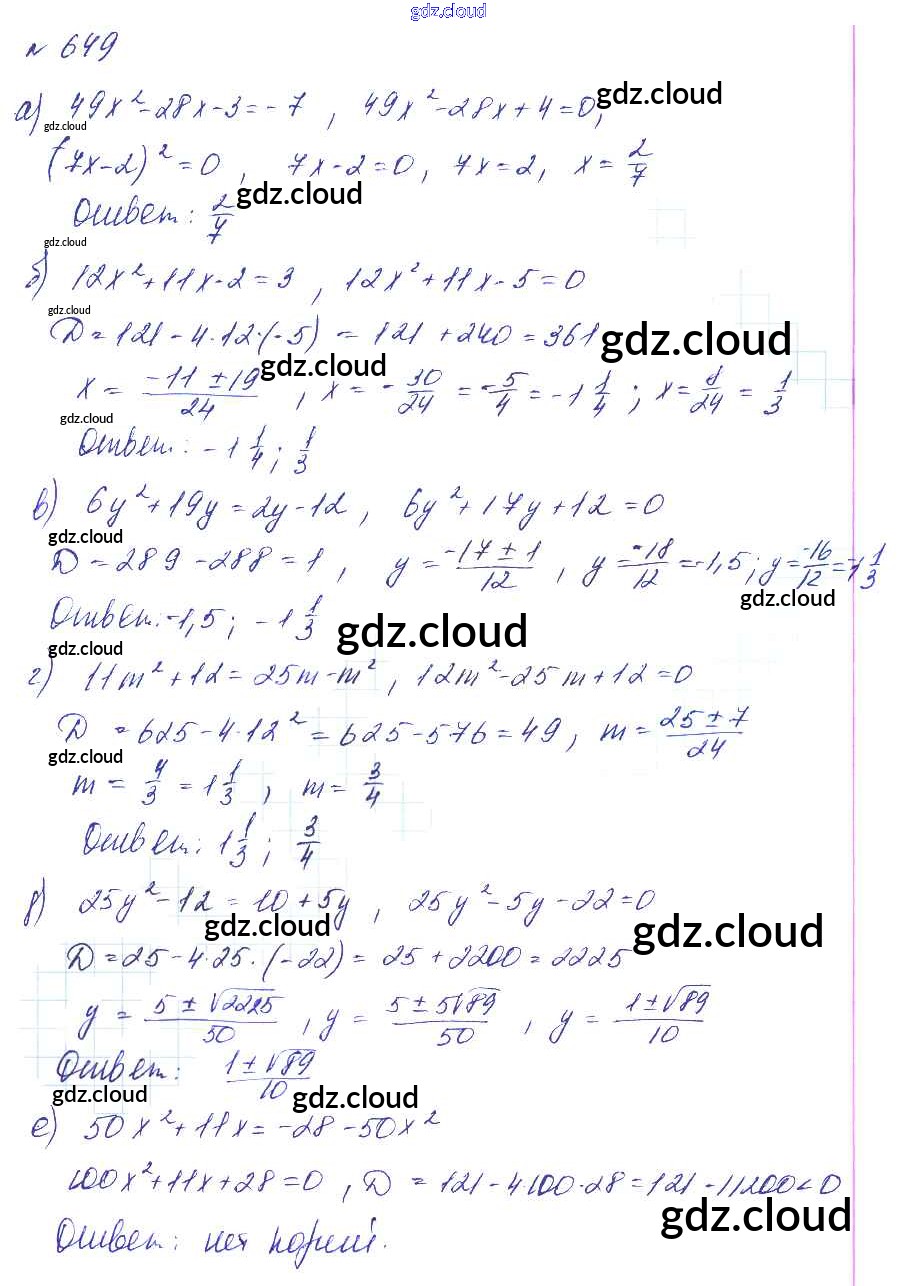 gdz.cloud
№ 649
а) 49x² - 28x - 3 = - 7 , 49x² - 28x + 4 = 0, gdz.cloud
gdz.cloud
(7x - 2)² = 0 , 7x - 2 = 0, 7x = 2, x = 2/7
gdz.cloud
Ответ: 2/7
gdz.cloud
б) 12x² + 11x - 2 = 3 , 12x² + 11x - 5 = 0
gdz.cloud
D = 121 - 4·12·(-5) = 121 + 240 = 361 gdz.cloud
gdz.cloud
x = (-11 ± 19)/24 , x = -30/24 = -5/4 = -1 1/4 ; x = 8/24 = 1/3
gdz.cloud
Ответ: -1 1/4 ; 1/3
в) 6y² + 19y = 2y - 12 , 6y² + 17y + 12 = 0
gdz.cloud
D = 289 - 288 = 1 , y = (-17 ± 1)/12 , y = -18/12 = -1,5 ; y = -16/12 = -1 1/3
gdz.cloud
Ответ: -1,5 ; -1 1/3 gdz.cloud
gdz.cloud
г) 11m² + 12 = 25m - m² , 12m² - 25m + 12 = 0
D = 625 - 4·12² = 625 - 576 = 49 , m = (25 ± 7)/24
gdz.cloud
m = 4/3 = 1 1/3 , m = 3/4
Ответ: 1 1/3 ; 3/4
д) 25y² - 12 = 10 + 5y , 25y² - 5y - 22 = 0
gdz.cloud gdz.cloud
D = 25 - 4·25·(-22) = 25 + 2200 = 2225
y = (5 ± √2225)/50 , y = (5 ± 5√89)/50 , y = (1 ± √89)/10
Ответ: (1 ± √89)/10
gdz.cloud gdz.cloud
е) 50x² + 11x = -28 - 50x²
100x² + 11x + 28 = 0 , D = 121 - 4·100·28 = 121 - 11200 < 0
gdz.cloud
Ответ: нет корней.